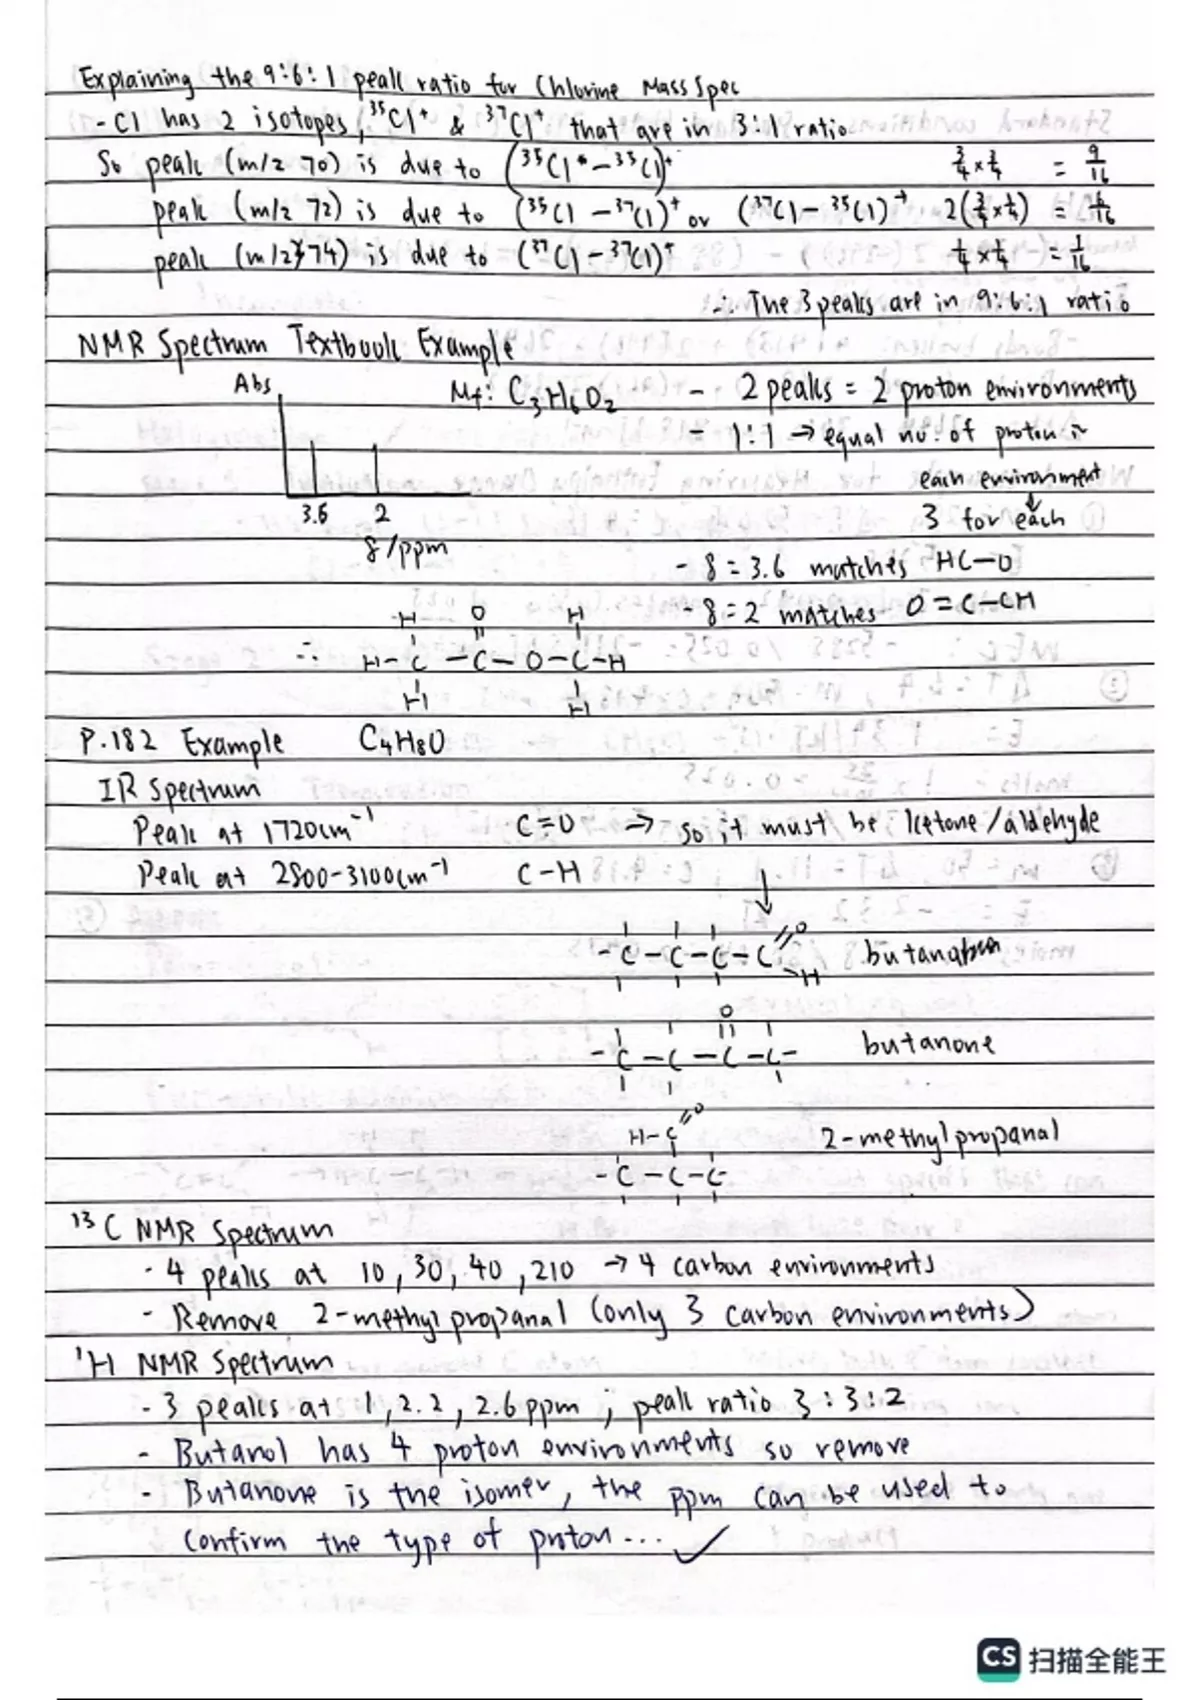 Explaining the 9:6:1 peak ratio for Chlorine Mass Spec
- Cl has 2 isotopes, ³⁵Cl⁺ & ³⁷Cl⁺ that are in 3:1 ratio
So peak (m/z 70) is due to (³⁵Cl⁺-³⁵Cl)⁺ 3/4 × 3/4 = 9/16
peak (m/z 72) is due to (³⁵Cl-³⁷Cl)⁺ or (³⁷Cl-³⁵Cl)⁺ 2(3/4×1/4) = 6/16
peak (m/z 74) is due to (³⁷Cl-³⁷Cl)⁺ 1/4 × 1/4 = 1/16
∴ The 3 peaks are in 9:6:1 ratio
NMR Spectrum Textbook Example
Abs Mf: C₃H₆O₂ - 2 peaks = 2 proton environments
= 1:1 → equal no. of proton in
each environment
↓
3.6 2 3 for each
δ/ppm
- δ = 3.6 matches HC-O
- δ = 2 matches O=C-CH
H O H
∴ H-C-C-O-C-H
H H
P.182 Example C₄H₈O
IR Spectrum
Peak at 1720cm⁻¹ C=O → so it must be ketone/aldehyde
Peak at 2800-3100cm⁻¹ C-H ↓
O
-C-C-C-C butanal
H
O
-C-C-C-C- butanone
O
H-C 2-methylpropanal
-C-C-C-
¹³C NMR Spectrum
- 4 peaks at 10, 30, 40, 210 → 4 carbon environments
- Remove 2-methylpropanal (only 3 carbon environments)
¹H NMR Spectrum
- 3 peaks at 1, 2.2, 2.6 ppm ; peak ratio 3:3:2
- Butanol has 4 proton environments so remove
- Butanone is the isomer, the ppm can be used to
confirm the type of proton... ✓
CS 扫描全能王